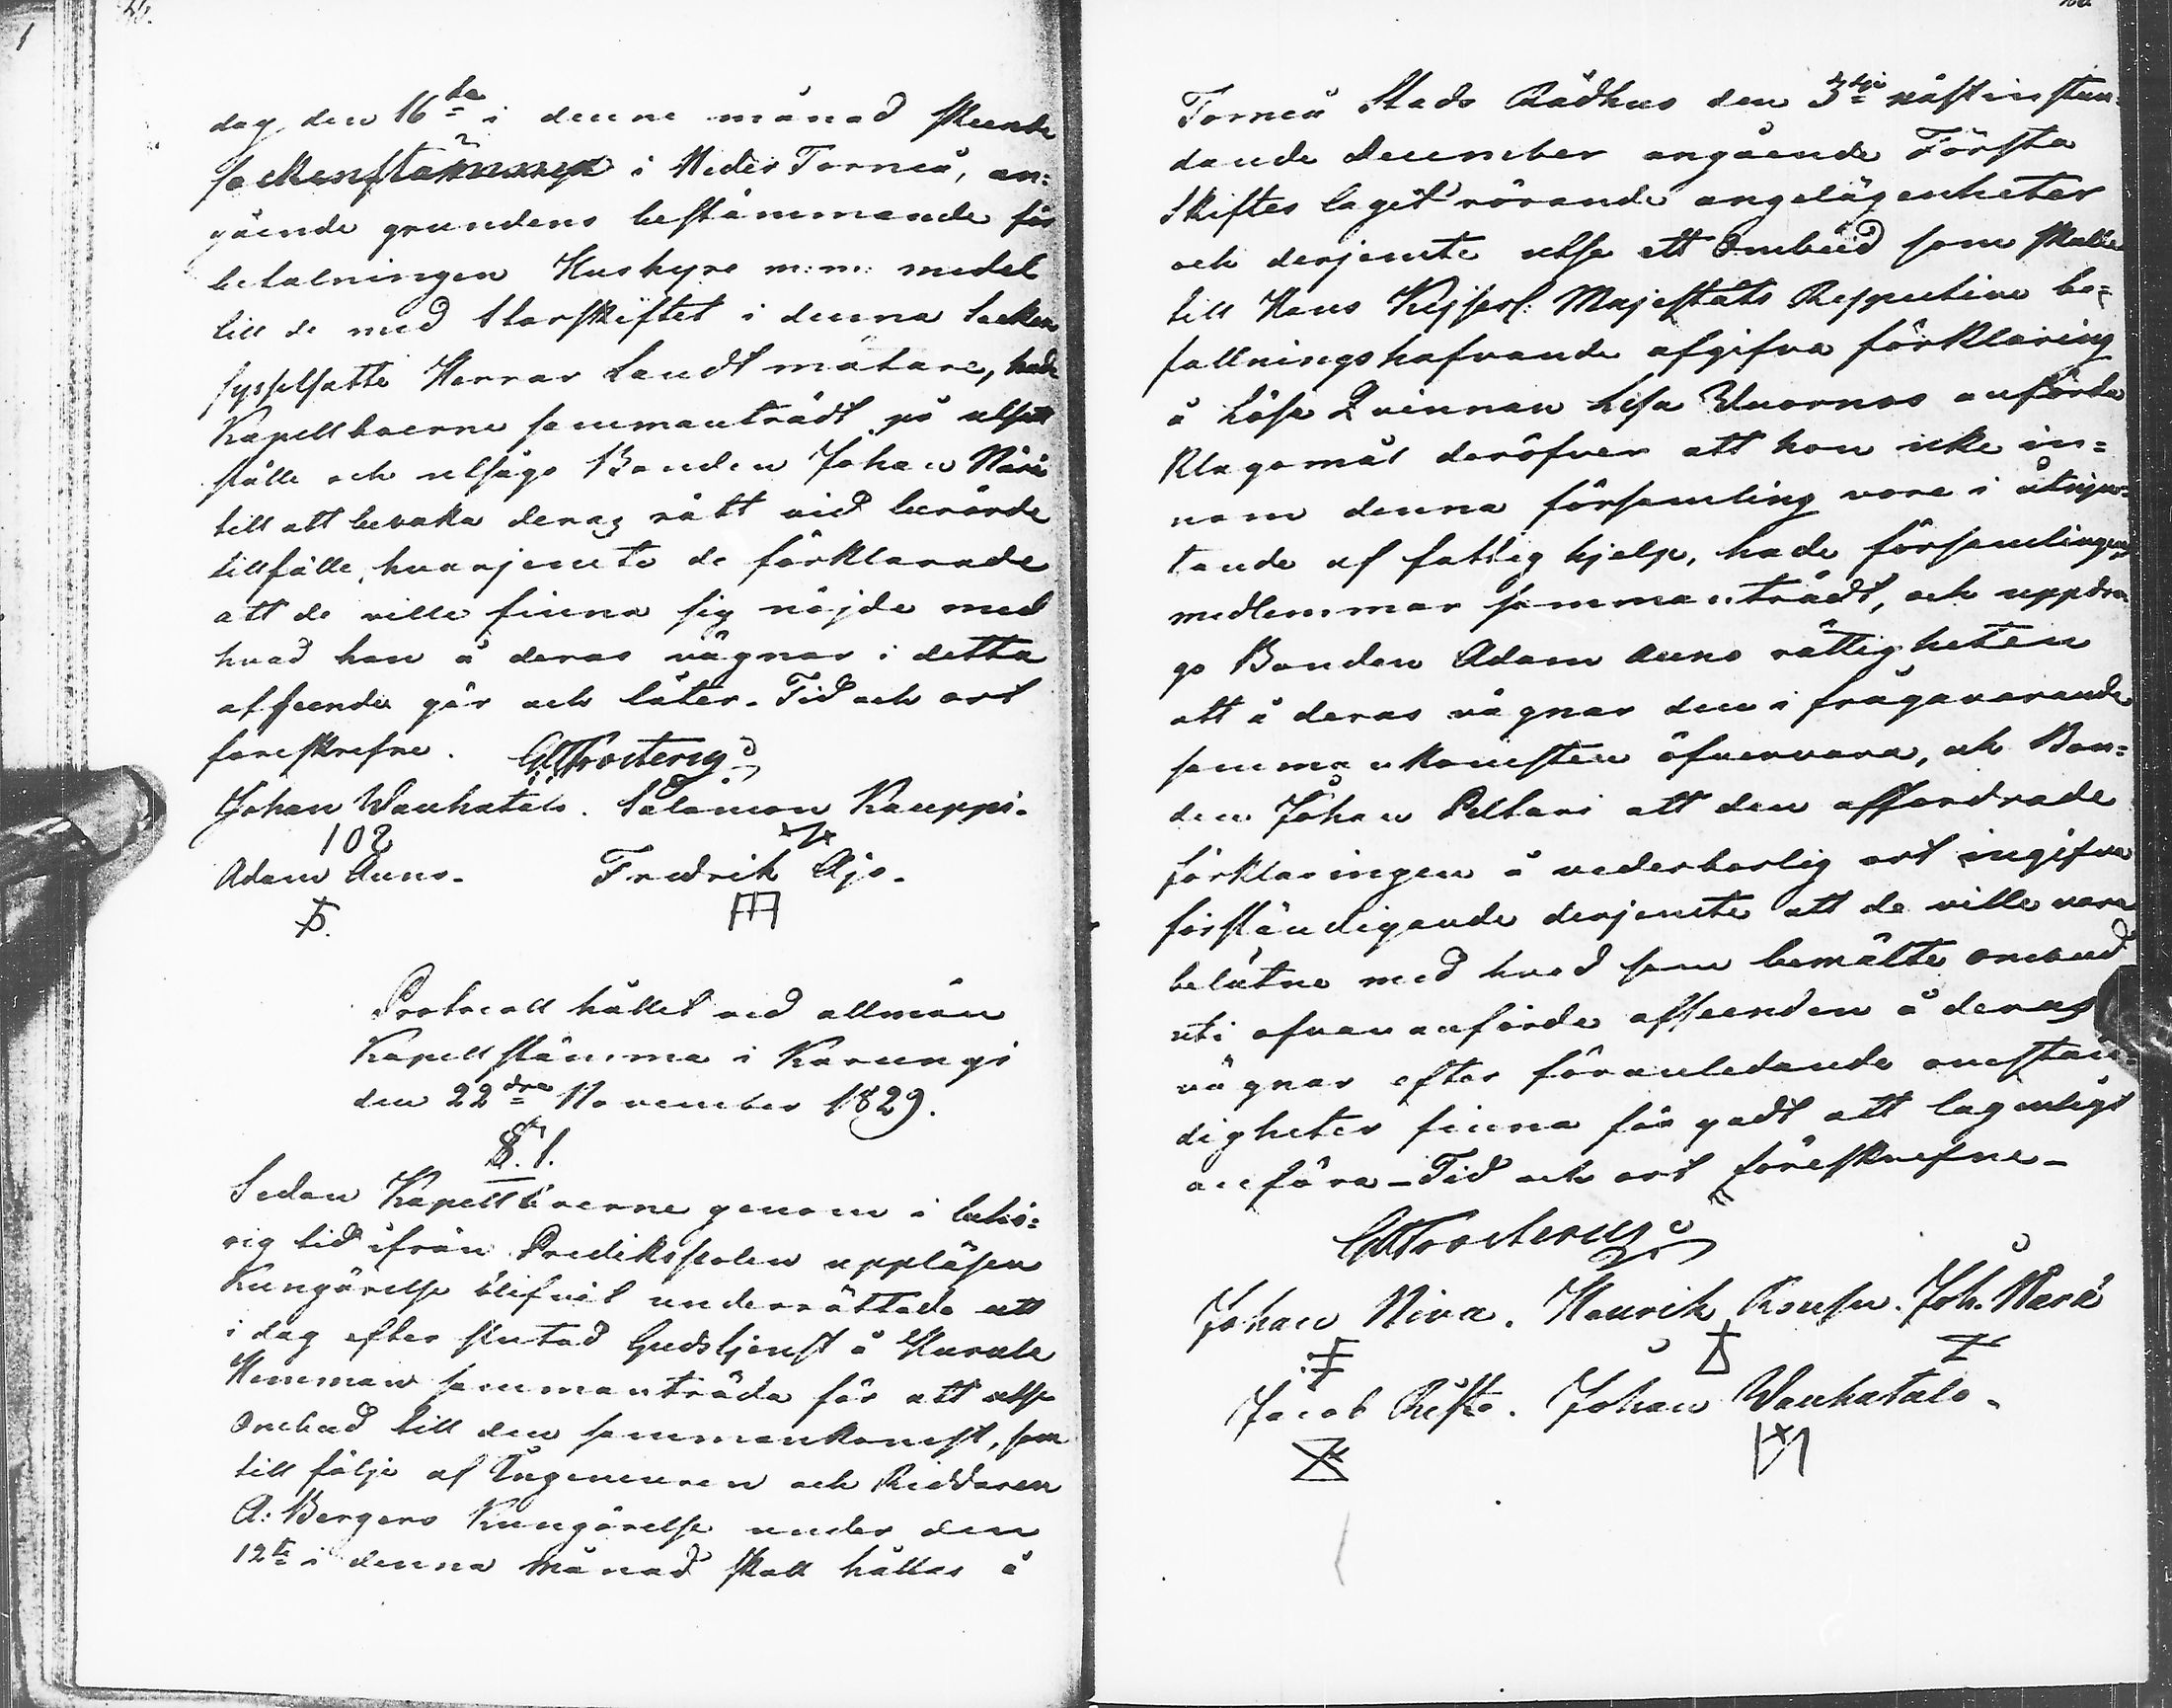 dag den 16de i denne månad skeende
sockenstämman i Neder Torneå, an:
gående grundens bestämmande för
betalningen Hushyra m:m: medel
till de med Storskiftet i denna Socken
sysselsatte Herrar Landtmätare, hade
Kapellboerne sammanträdt på utsatt
ställe och utsågo Bonden Johan Närä
till att bevaka deras rätt vid berörde
tillfälle, hvarjemte de förklarade
att de ville finna sig nöjde med
hvad han å deras vägnar i detta
afseende gör och låter. Tid och ort
föreskrefne. Frosterus
Johan Wanhatalo. Salomon Kauppi.
Adam Auno. Fredrik Ajo.
Protocoll hållet vid allmän
Kapellstämma i Karungi
den 22dra November 1829.
§. 1.
Sedan Kapellboerne genom i behö:
rig tid ifrån Predikstolen uppläsen
Kungörelse blifvit underrättade att
i dag efter slutad Gudstjenst å
Hemman sammanträda för att utse
Ombud till den sammankomst, som
till följe af Ingenieuren och Riddaren
A: Bergers Kungörelse under den
12te i denna månad skall hållas å
Torneå Stads Rådhus den 3dje nästinstun:
dande December angående Första
Skiftes laget rörande angelägenheter
och derjemte utse ett Ombud som skulle
till Hans Kejserl: Majestäts Respective be:
fallningshafvande afgifva förklaring
å Lösa Qvinnan Lisa Vuornos anförda
Klagomål deröfver att hon icke in:
nom denna församling vore i åtnju:
tande af fattig hjelp, hade församlingens
medlemmar sammanträdt, och uppdra
go Bonden Adam Auno rättigheten
att å deras vägnar den i frågavarande
sammankomsten öfvervara, och Bon:
den Johan Peltari att den affordrade
förklaringen å vederbörlig ort ingifva
förständigande derjemte att de ville vara
belåtne med hvad som bemälte ombud
uti ofvananförde afseenden å deras
vägnar efter föranledande omstän:
digheter finna för godt att lagenligt
anföra – Tid och ort föreskrefne –
Frosterus
Johan Niva. Henrik. Joh. Närä
Jacob. Johan Wanhatalo.